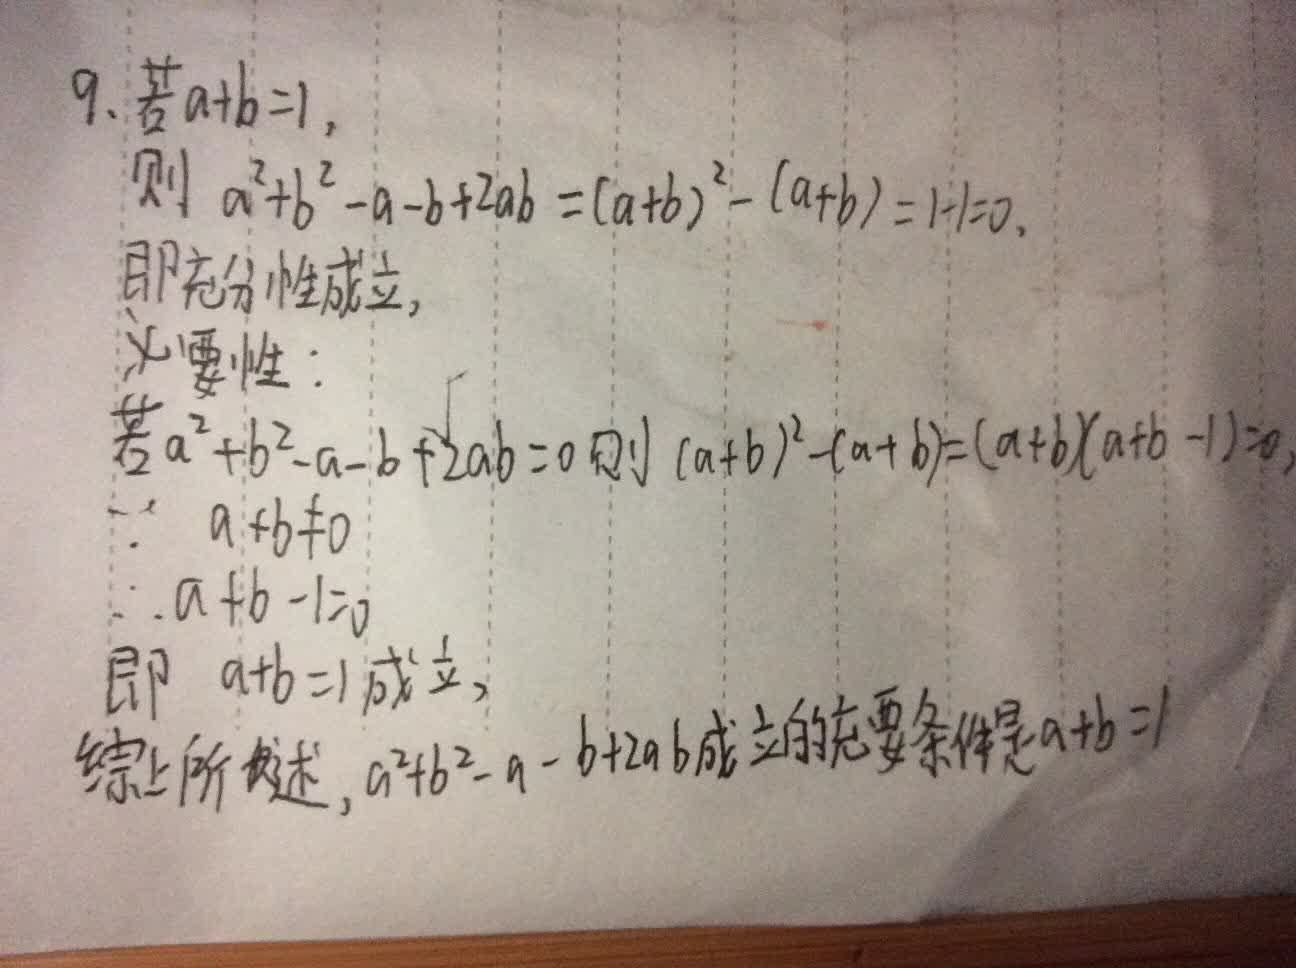 9、若a+b=1,
则 a²+b²-a-b+2ab=(a+b)²-(a+b)=1-1=0.
即充分性成立,
必要性:
若a²+b²-a-b+2ab=0则 (a+b)²-(a+b)=(a+b)(a+b-1)=0,
∵ a+b≠0
∴a+b-1=0
即 a+b=1成立,
综上所述,a²+b²-a-b+2ab成立的充要条件是a+b=1